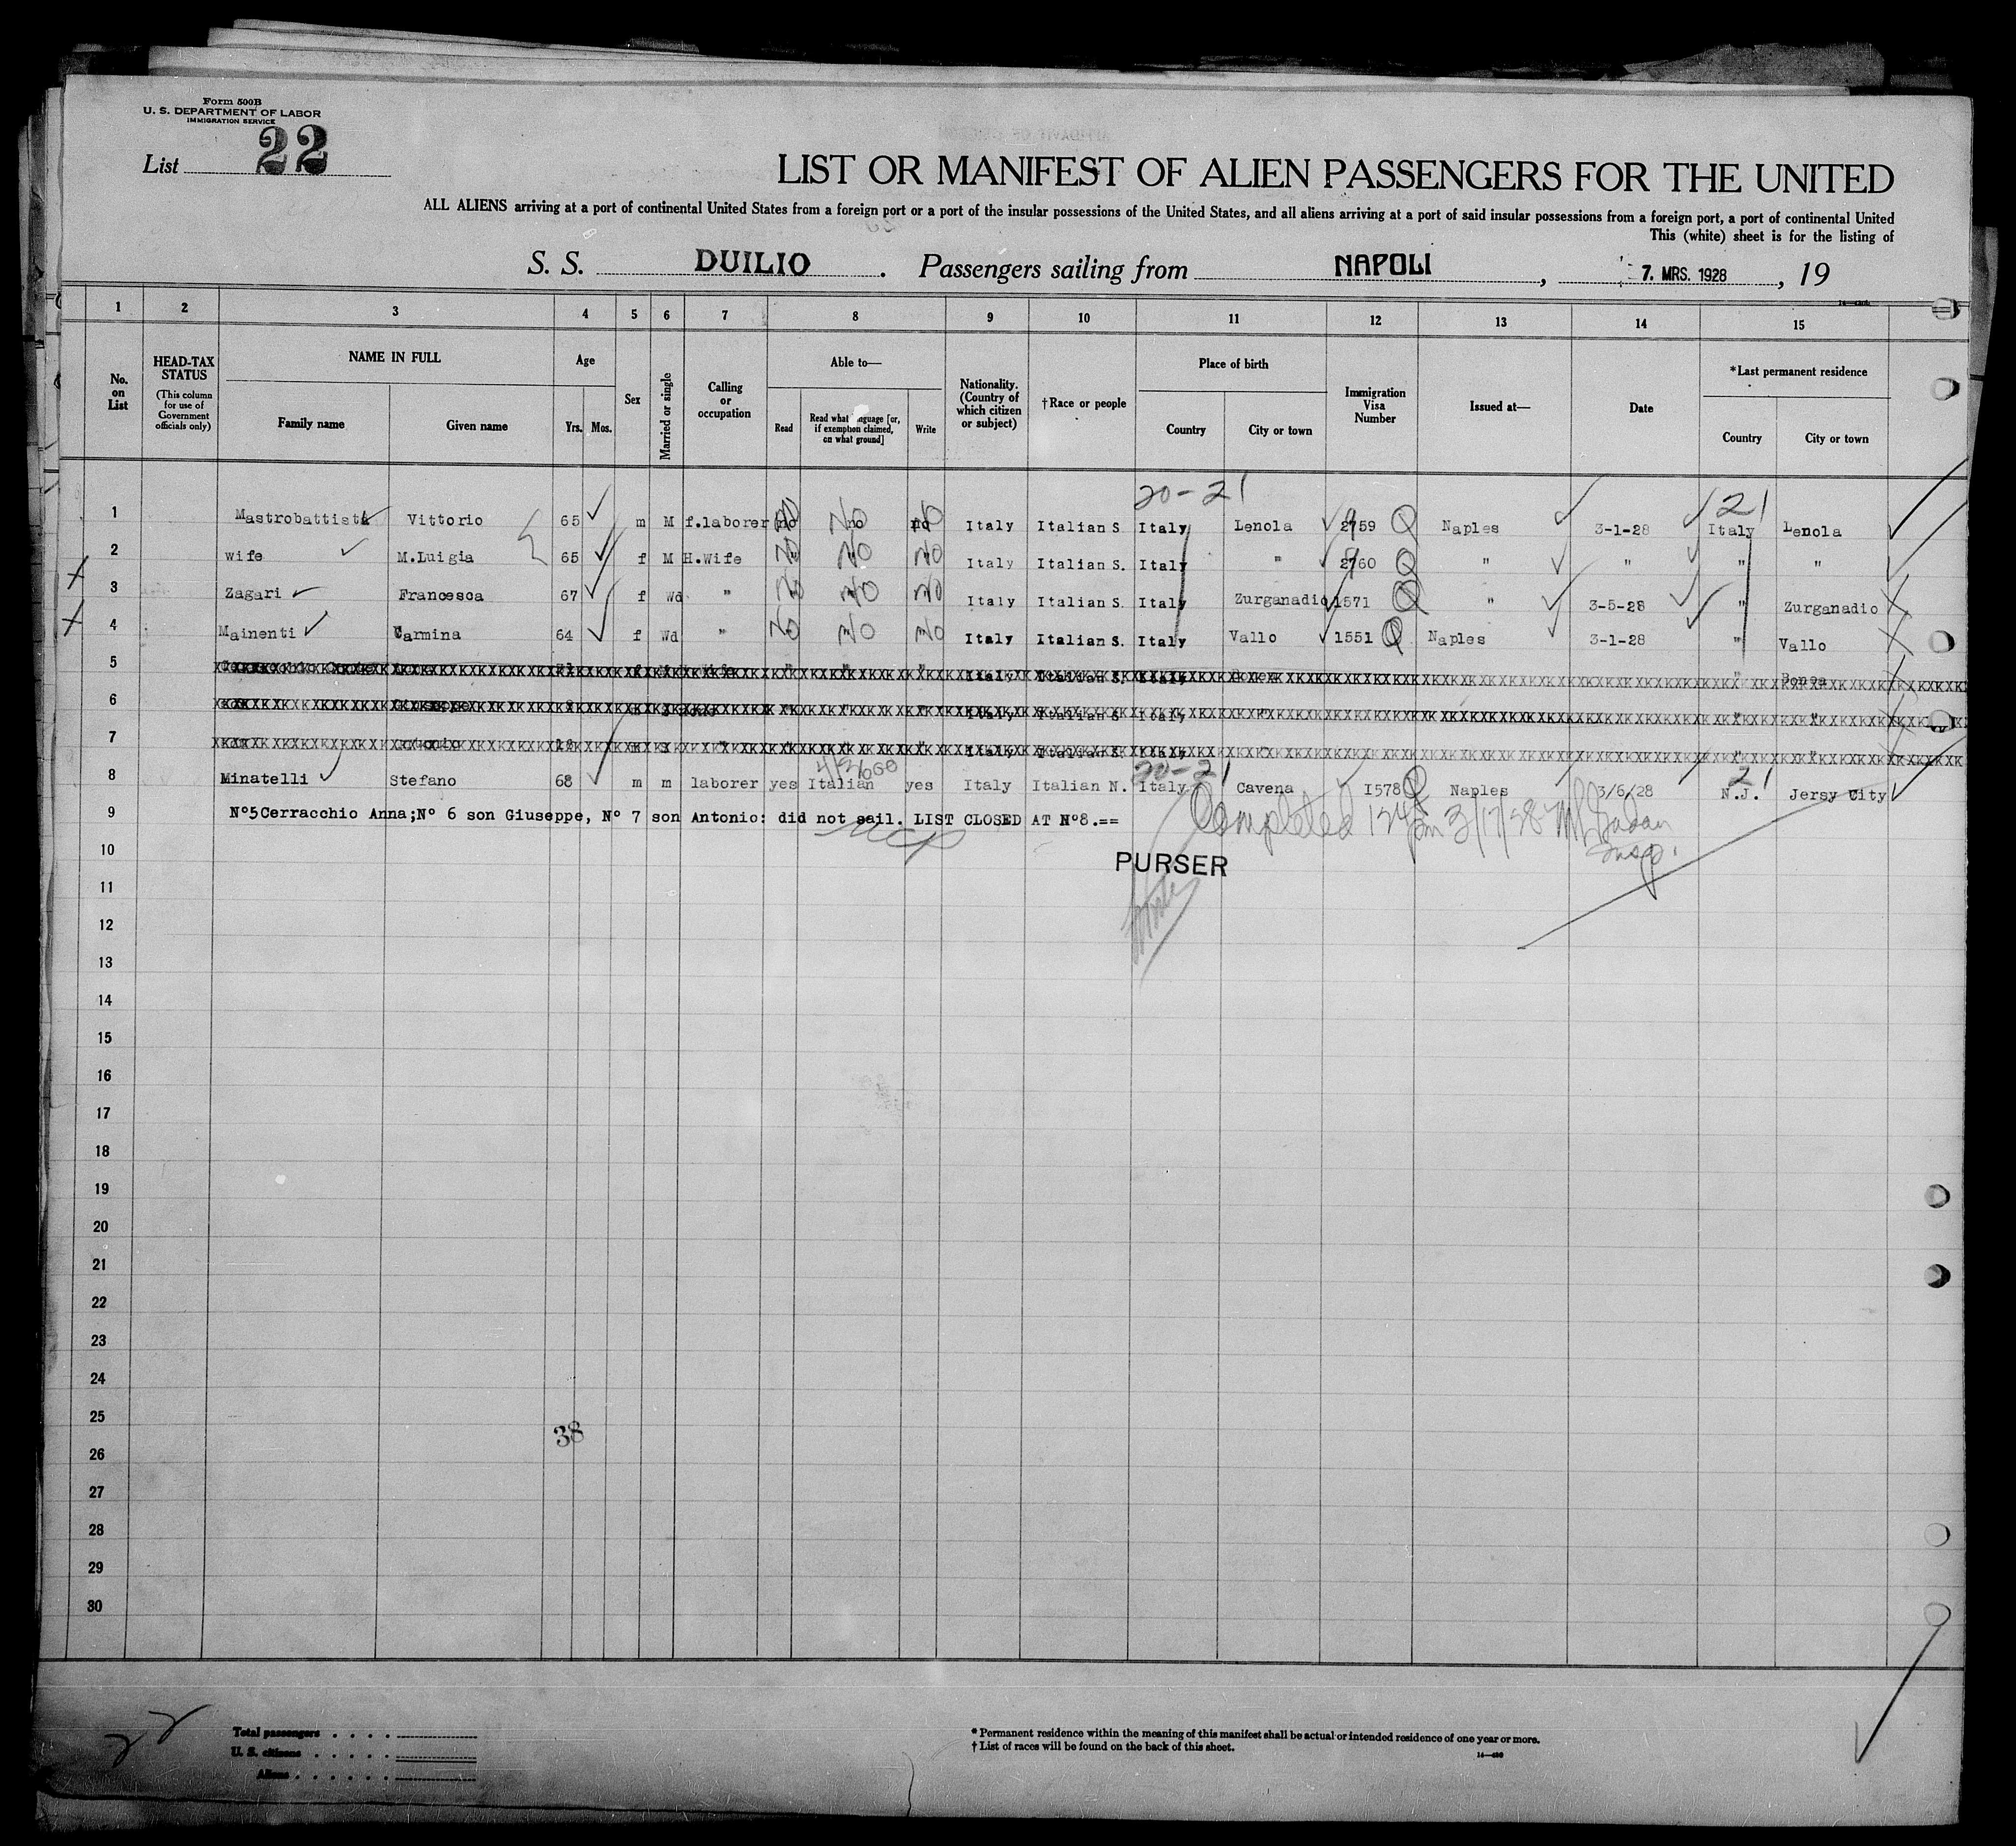 Form 500B
U. S. DEPARTMENT OF LABOR
IMMIGRATION SERVICE
List 22
LIST OR MANIFEST OF ALIEN PASSENGERS FOR THE UNITED
ALL ALIENS arriving at a port of continental United States from a foreign port or a port of the insular possessions of the United States, and all aliens arriving at a port of said insular possessions from a foreign port, a port of continental United
This (white) sheet is for the listing of
S. S. DUILIO . Passengers sailing from NAPOLI , 7. MRS. 1928 , 19
1 2 3 4 5 6 7 8 9 10 11 12 13 14 15
No. on List
HEAD-TAX STATUS
(This column for use of Government officials only)
NAME IN FULL
Family name Given name
Age
Yrs. Mos.
Sex
Married or single
Calling or occupation
Able to—
Read
Read what language [or, if exemption claimed, on what ground]
Write
Nationality. (Country of which citizen or subject)
†Race or people
Place of birth
Country City or town
Immigration Visa Number
Issued at—
Date
*Last permanent residence
Country City or town
20-21 21
1 Mastrobattista Vittorio 65 m M f.laborer no no no Italy Italian S. Italy Lenola 2759 Q Naples 3-1-28 Italy Lenola
2 wife M.Luigia 65 f M H.Wife " No No Italy Italian S. Italy " 2760 Q " " " "
3 Zagari Francesca 67 f Wd " No No No Italy Italian S. Italy Zurganadio 1571 Q " 3-5-28 " Zurganadio
4 Mainenti Carmina 64 f Wd " No No No Italy Italian S. Italy Vallo 1551 Q Naples 3-1-28 " Vallo
5 Italy Italian S. Italy "
6 Italy Italian S Italy " " "
7 Italy Italian S. Italy " " "
20-21 21
8 Minatelli Stefano 68 m m laborer yes Italian yes Italy Italian N. Italy Cavena I578 Q Naples 3/6/28 N.J. Jersy City
9 Nº5Cerracchio Anna;Nº 6 son Giuseppe, Nº 7 son Antonio: did not sail. LIST CLOSED AT Nº8.==
Completed 3/17/28 Insp.
10
PURSER
11
12
13
14
15
16
17
18
19
20
21
22
23
24
25
38
26
27
28
29
30
22
Total passengers . . . .
U. S. citizens . . . . .
Aliens . . . . . .
* Permanent residence within the meaning of this manifest shall be actual or intended residence of one year or more.
† List of races will be found on the back of this sheet.